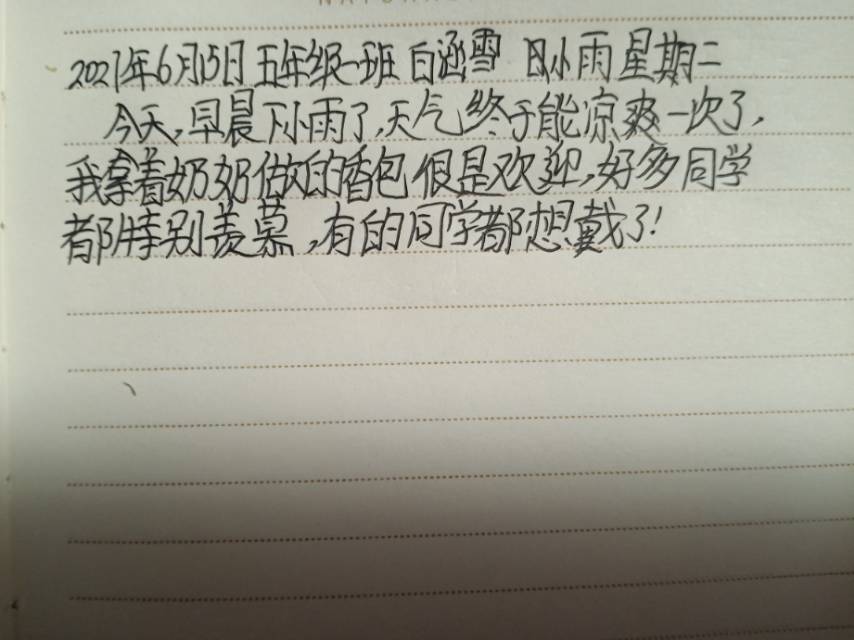 2021年6月15日 五年级一班 白涵雪 日小雨 星期二
今天,早晨下小雨了,天气终于能凉爽一次了,
我拿着奶奶做的香包很是欢迎,好多同学
都特别羡慕,有的同学都想戴了!